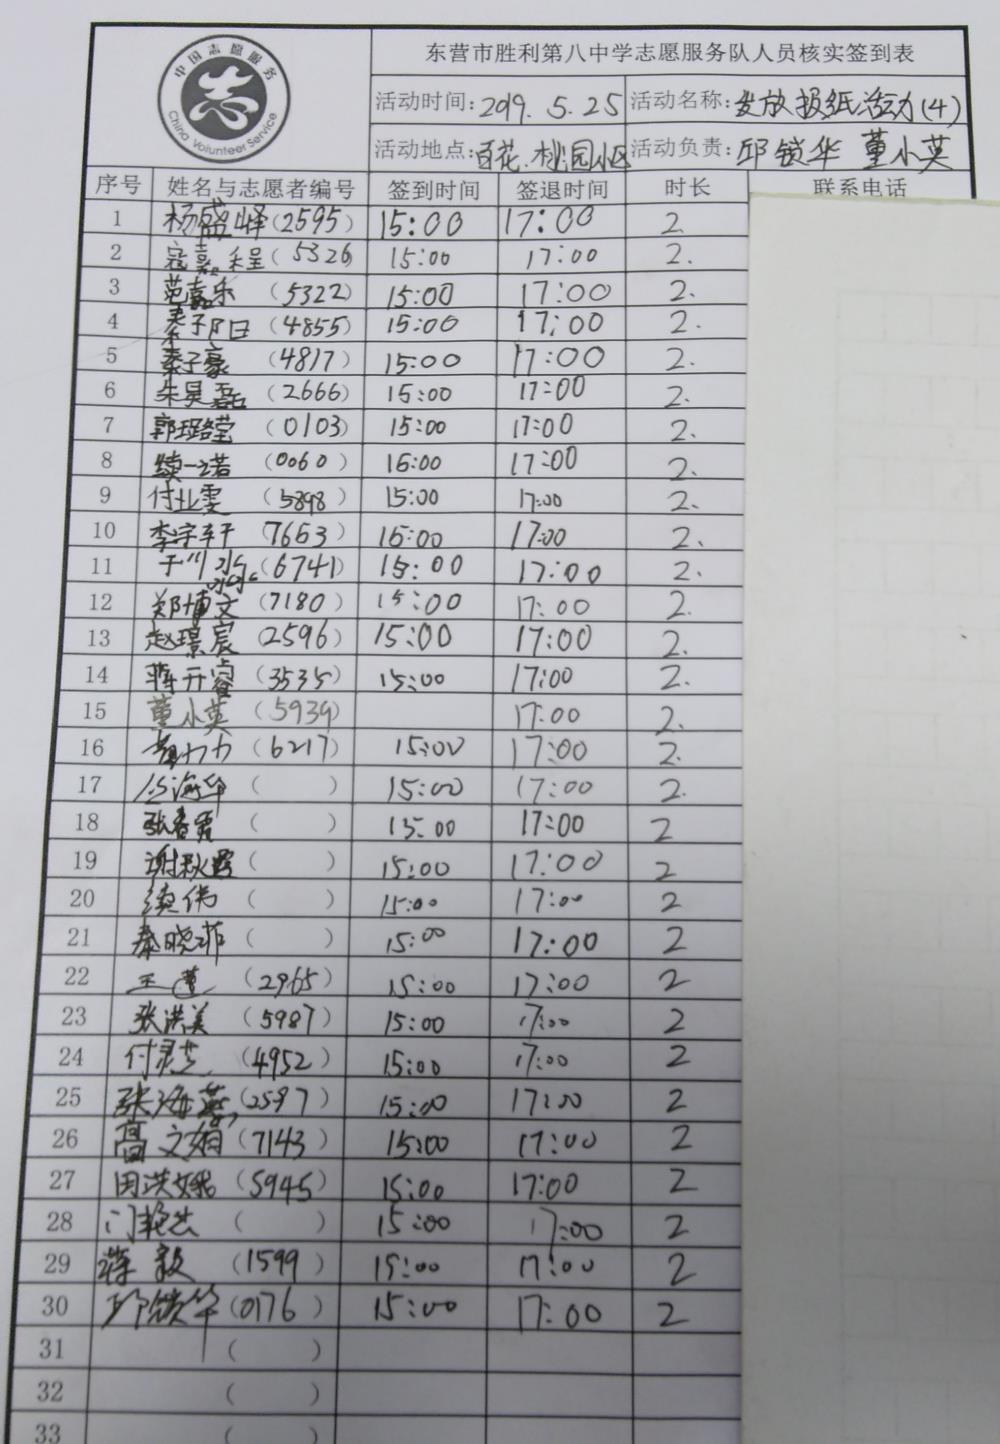 中国志愿服务
志
China Volunteer Service
东营市胜利第八中学志愿服务队人员核实签到表
活动时间: 2019.5.25 活动名称: 发放报纸活动(4)
活动地点: 百花.桃园小区 活动负责: 邱锁华 董小英
序号 姓名与志愿者编号 签到时间 签退时间 时长 联系电话
1 杨盛峄(2595) 15:00 17:00 2.
2 寇嘉程(5326) 15:00 17:00 2.
3 范嘉乐(5322) 15:00 17:00 2.
4 秦子阳(4855) 15:00 17:00 2.
5 秦子豪(4817) 15:00 17:00 2.
6 朱昊磊(2666) 15:00 17:00 2.
7 郭璐莹(0103) 15:00 17:00 2.
8 续一诺(0060) 15:00 17:00 2.
9 付业雯(5898) 15:00 17:00 2.
10 李宇轩(7653) 15:00 17:00 2.
11 于川淼(6741) 15:00 17:00 2.
12 郑博文(7180) 15:00 17:00 2.
13 赵璟宸(2596) 15:00 17:00 2.
14 蒋开睿(3535) 15:00 17:00 2.
15 董小英(5939) 17:00 2.
16 (6217) 15:00 17:00 2.
17 海华( ) 15:00 17:00 2.
18 张春霞( ) 15:00 17:00 2
19 谢秋霞( ) 15:00 17:00 2
20 续伟( ) 15:00 17:00 2
21 秦晓菲( ) 15:00 17:00 2
22 王莲(2965) 15:00 17:00 2
23 张洪美(5987) 15:00 17:00 2
24 付灵芝(4952) 15:00 17:00 2
25 张海燕(2597) 15:00 17:00 2
26 高文娟(7143) 15:00 17:00 2
27 田洪娥(5945) 15:00 17:00 2
28 门艳兰( ) 15:00 17:00 2
29 蒋毅(1599) 15:00 17:00 2
30 邱锁华(0176) 15:00 17:00 2
31 ( )
32 ( )
33 ( )